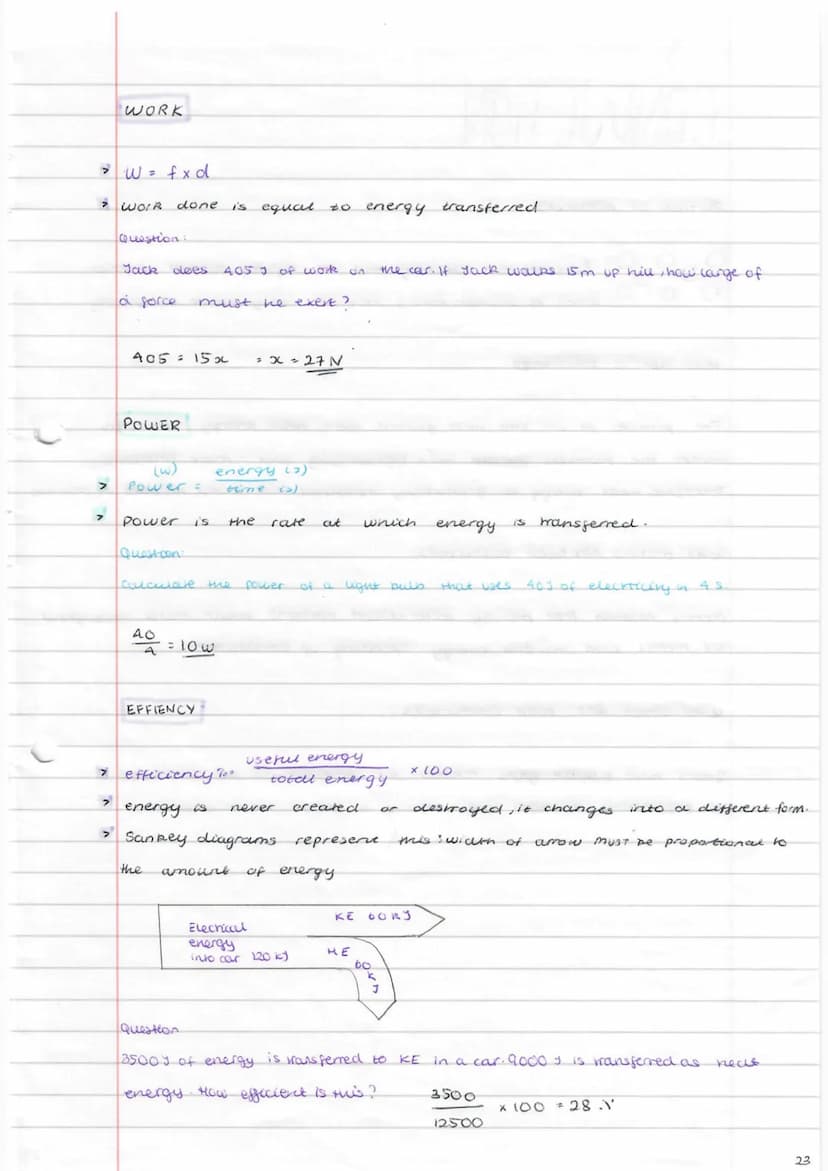 WORK
> W = f x d
> work done is equal to energy transferred
Question:
Jack does 405 J of work on the car. If Jack walks 15m up hill, how large of
a force must he exert?
405 = 15x = x = 27 N
POWER
(W) energy (J)
> Power = time (s)
> Power is the rate at which energy is transferred.
Question:
Calculate the power of a light bulb that uses 40J of electricity in 4s
40
4 = 10w
EFFIENCY
useful energy
> efficiency %= total energy x 100
> energy is never created or destroyed, it changes into a different form.
> Sankey diagrams represent this: width of arrow must be proportional to
the amount of energy
KE 60KJ
Electrical
energy
into car 120 KJ
HE
60
K
J
Question
3500 J of energy is transferred to KE in a car. 9000 J is transferred as heat
energy. How efficient is this?
3500
12500 x 100 = 28
23